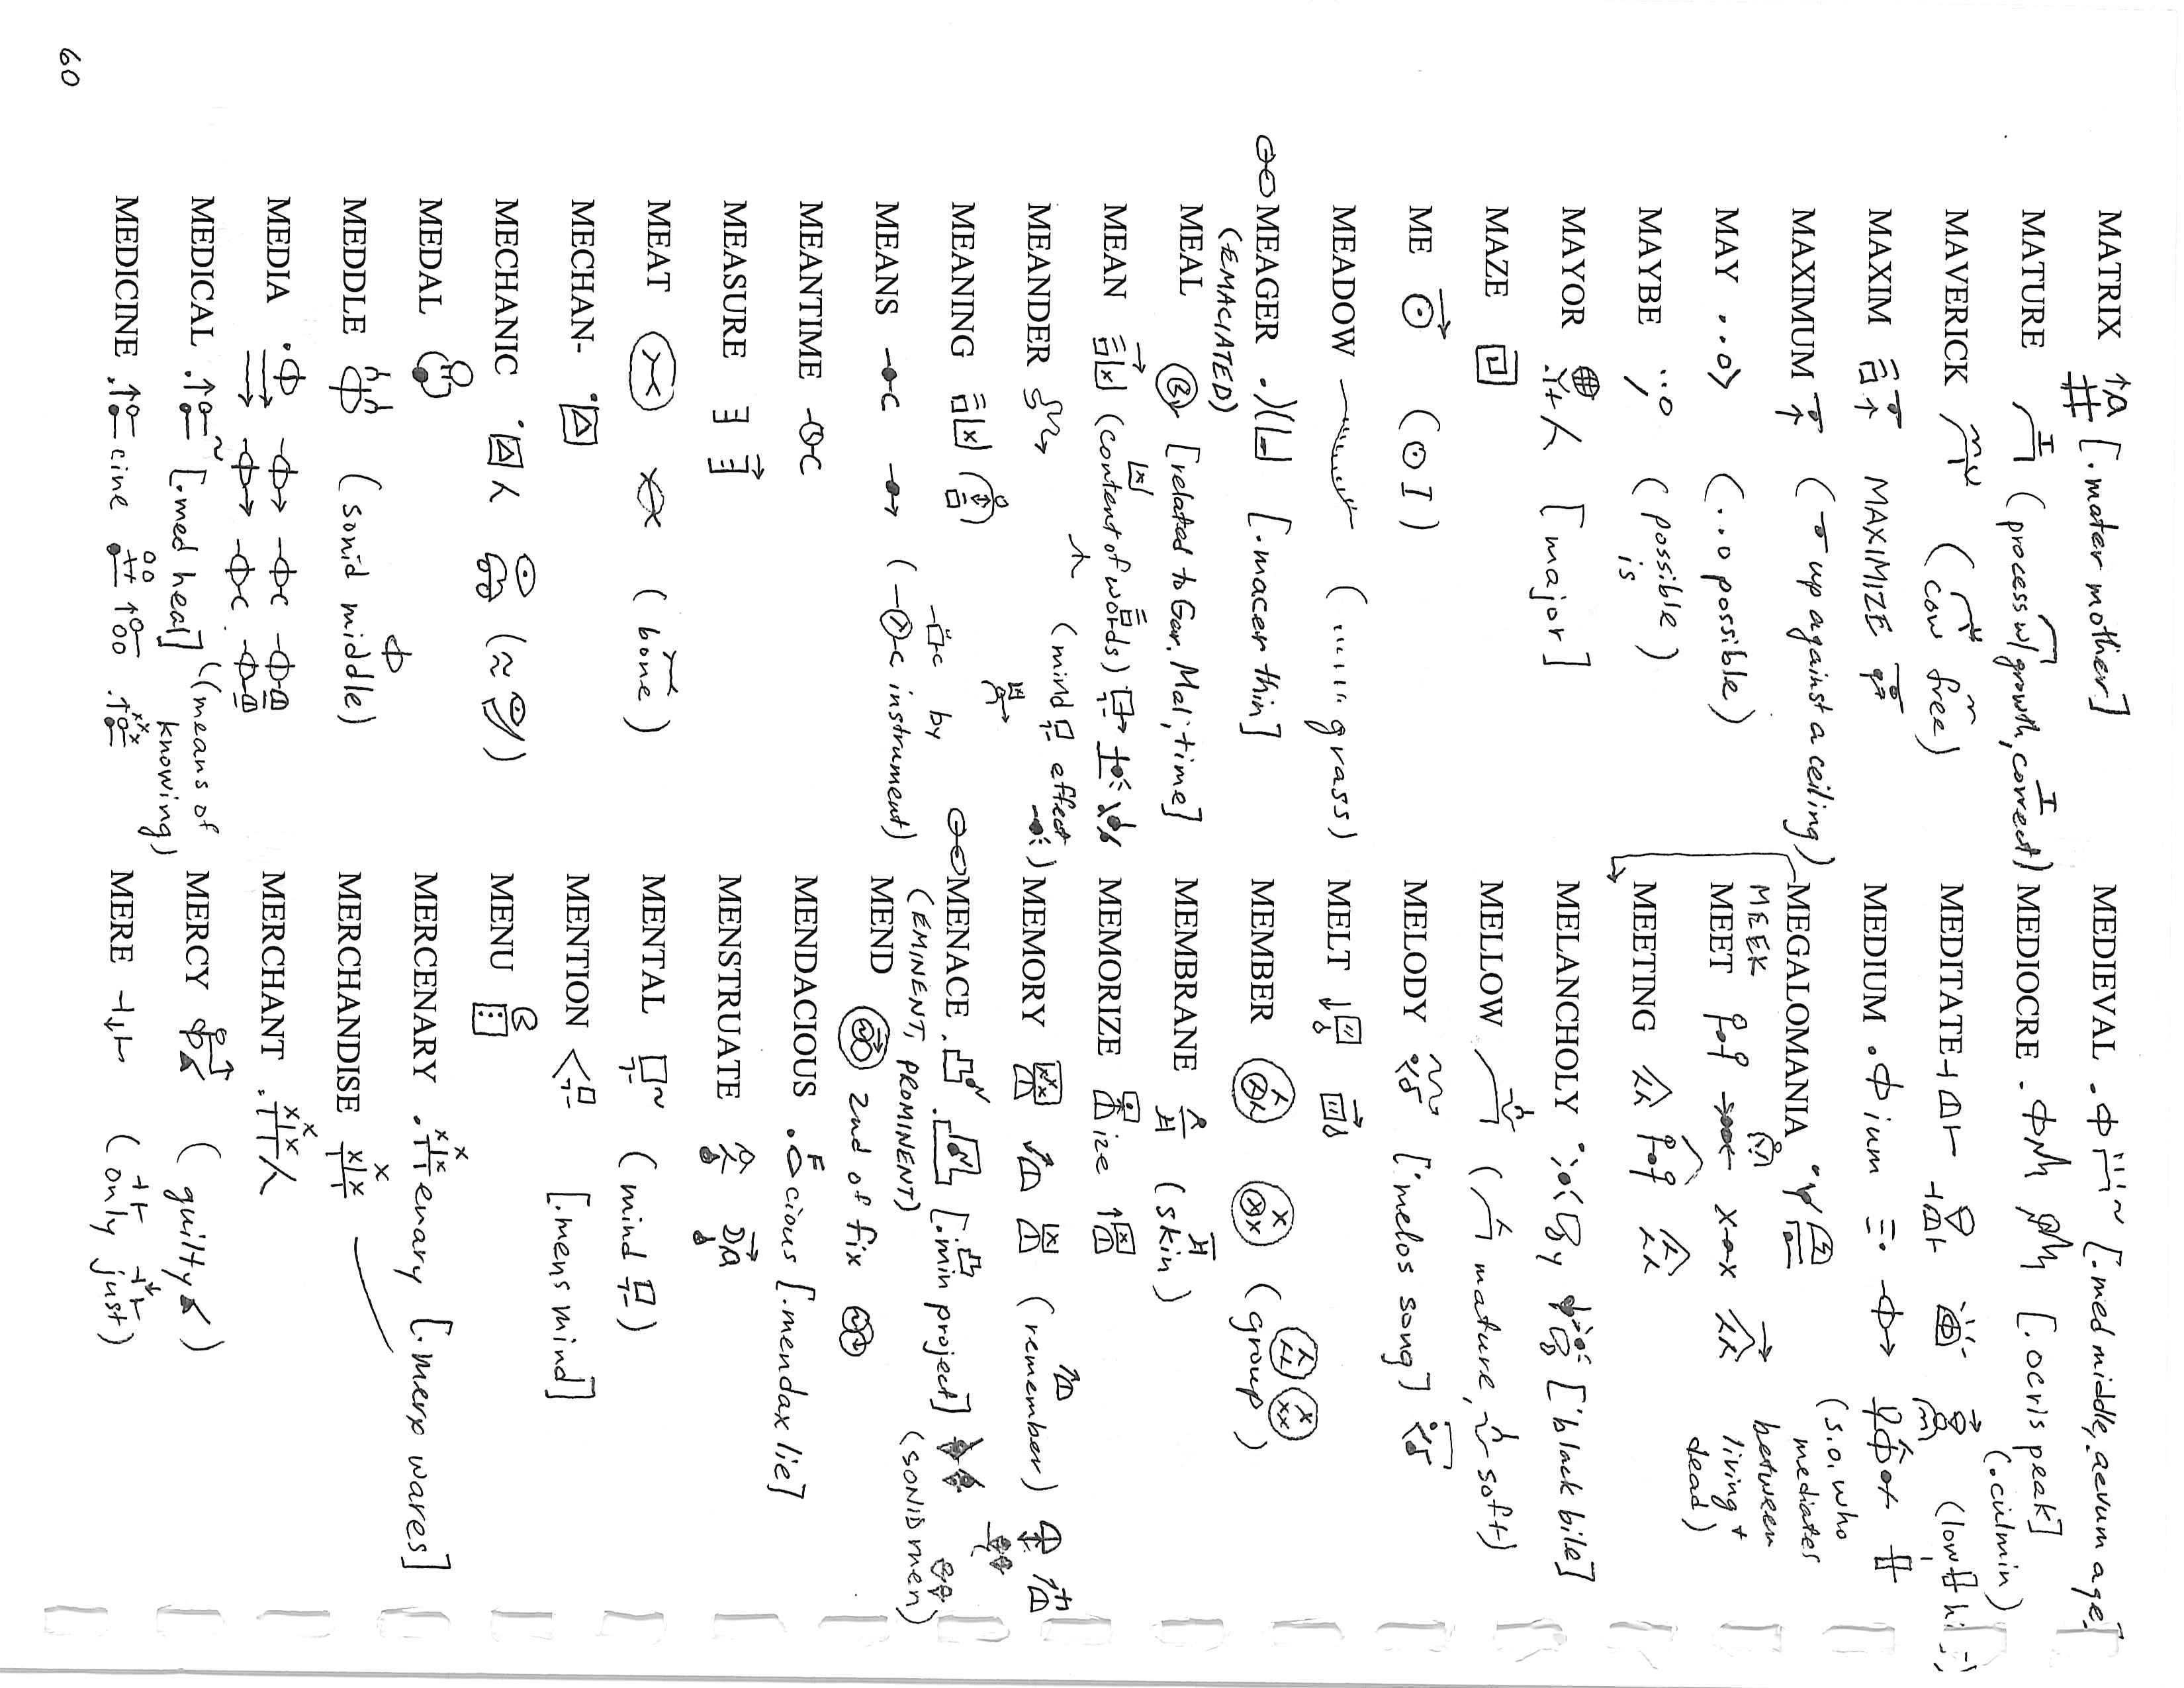 MATRIX [.mater mother]
MATURE (process w/ growth, correct)
MAVERICK (cow free)
MAXIM MAXIMIZE
MAXIMUM (up against a ceiling)
MAY ...o> (...o possible)
MAYBE (possible is)
MAYOR [major]
MAZE
ME (⊙ I)
MEADOW (...... grass)
MEAGER [.macer thin]
(EMACIATED)
MEAL [related to Ger. Mal; time]
MEAN (content of words)
MEANDER (mind effect)
MEANING by
MEANS (instrument)
MEANTIME
MEASURE
MEAT (bone)
MECHAN-
MECHANIC
MEDAL
MEDDLE (sonid middle)
MEDIA
MEDICAL [.med heal] (means of knowing)
MEDICINE cine
MEDIEVAL [.med middle, aevum age]
MEDIOCRE [.ocris peak] (.culmin)
MEDITATE (low hi
MEDIUM ium (s.o. who mediates between living + dead)
MEGALOMANIA
MEEK
MEET
MEETING
MELANCHOLY y [black bile]
MELLOW (mature, soft)
MELODY [melos song]
MELT
MEMBER (group)
MEMBRANE (skin)
MEMORIZE ize
MEMORY (remember)
MENACE [.min project] (SONID men)
(EMINENT, PROMINENT)
MEND 2nd of fix
MENDACIOUS cious [.mendax lie]
MENSTRUATE
MENTAL (mind)
MENTION [.mens mind]
MENU
MERCENARY enary [.merx wares]
MERCHANDISE
MERCHANT
MERCY (guilty)
MERE (only just)
60